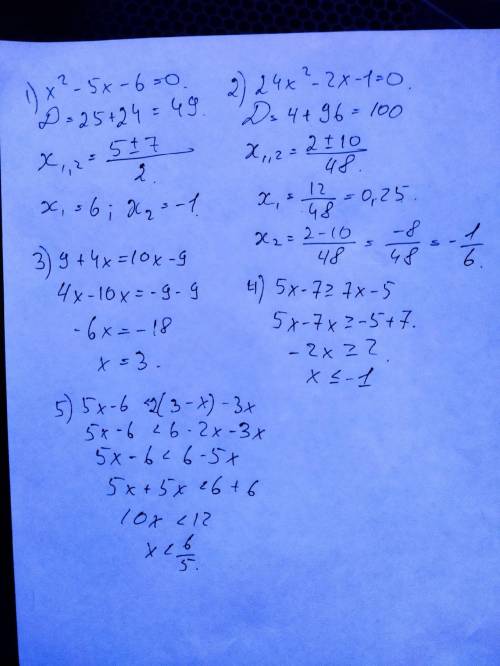 1) x² - 5x - 6 = 0.
D = 25 + 24 = 49.
x₁,₂ = (5 ± 7)/2.
x₁ = 6; x₂ = -1.
2) 24x² - 2x - 1 = 0.
D = 4 + 96 = 100
x₁,₂ = (2 ± 10)/48.
x₁ = 12/48 = 0,25.
x₂ = (2 - 10)/48 = -8/48 = -1/6.
3) 9 + 4x = 10x - 9
4x - 10x = -9 - 9
-6x = -18
x = 3.
4) 5x - 7 ≥ 7x - 5
5x - 7x ≥ -5 + 7.
-2x ≥ 2.
x ≤ -1
5) 5x - 6 < 2(3 - x) - 3x
5x - 6 < 6 - 2x - 3x
5x - 6 < 6 - 5x
5x + 5x < 6 + 6
10x < 12
x < 6/5.